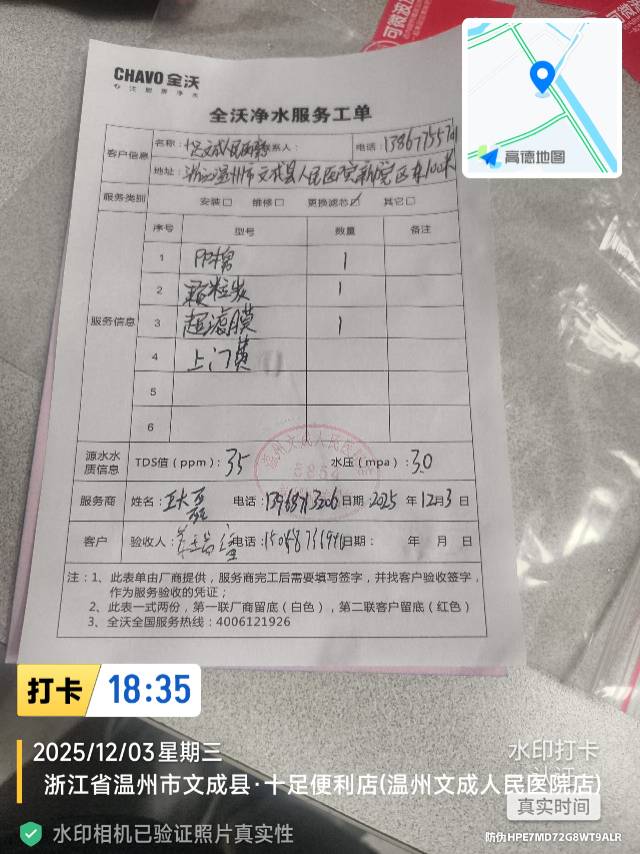 可微波
CHAVO 全沃
专注厨房净水
全沃净水服务工单
客户信息
名称: 文成人民医院 联系人: 电话:
地址: 浙江温州市文成县人民医院新院区东100米
服务类别 安装□ 维修□ 更换滤芯☑ 其它□
服务信息
序号 型号 数量 备注
1 PP棉 1
2 颗粒炭 1
3 超滤膜 1
4 上门费
5
6
源水水质信息 TDS值(ppm): 35 水压(mpa): 30
温州文成人民医院
服务商 姓名: 电话: 日期: 2025 年 12月3日
客户 验收人: 电话: 日期: 年 月 日
注:1、此表单由厂商提供,服务商完工后需要填写签字,并找客户验收签字,
作为服务验收的凭证;
2、此表一式两份,第一联厂商留底(白色),第二联客户留底(红色)
3、全沃全国服务热线:4006121926
高德地图
打卡 18:35
2025/12/03 星期三
浙江省温州市文成县·十足便利店(温州文成人民医院店)
水印相机已验证照片真实性
水印打卡
真实时间
防伪HPE7MD72G8WT9ALR